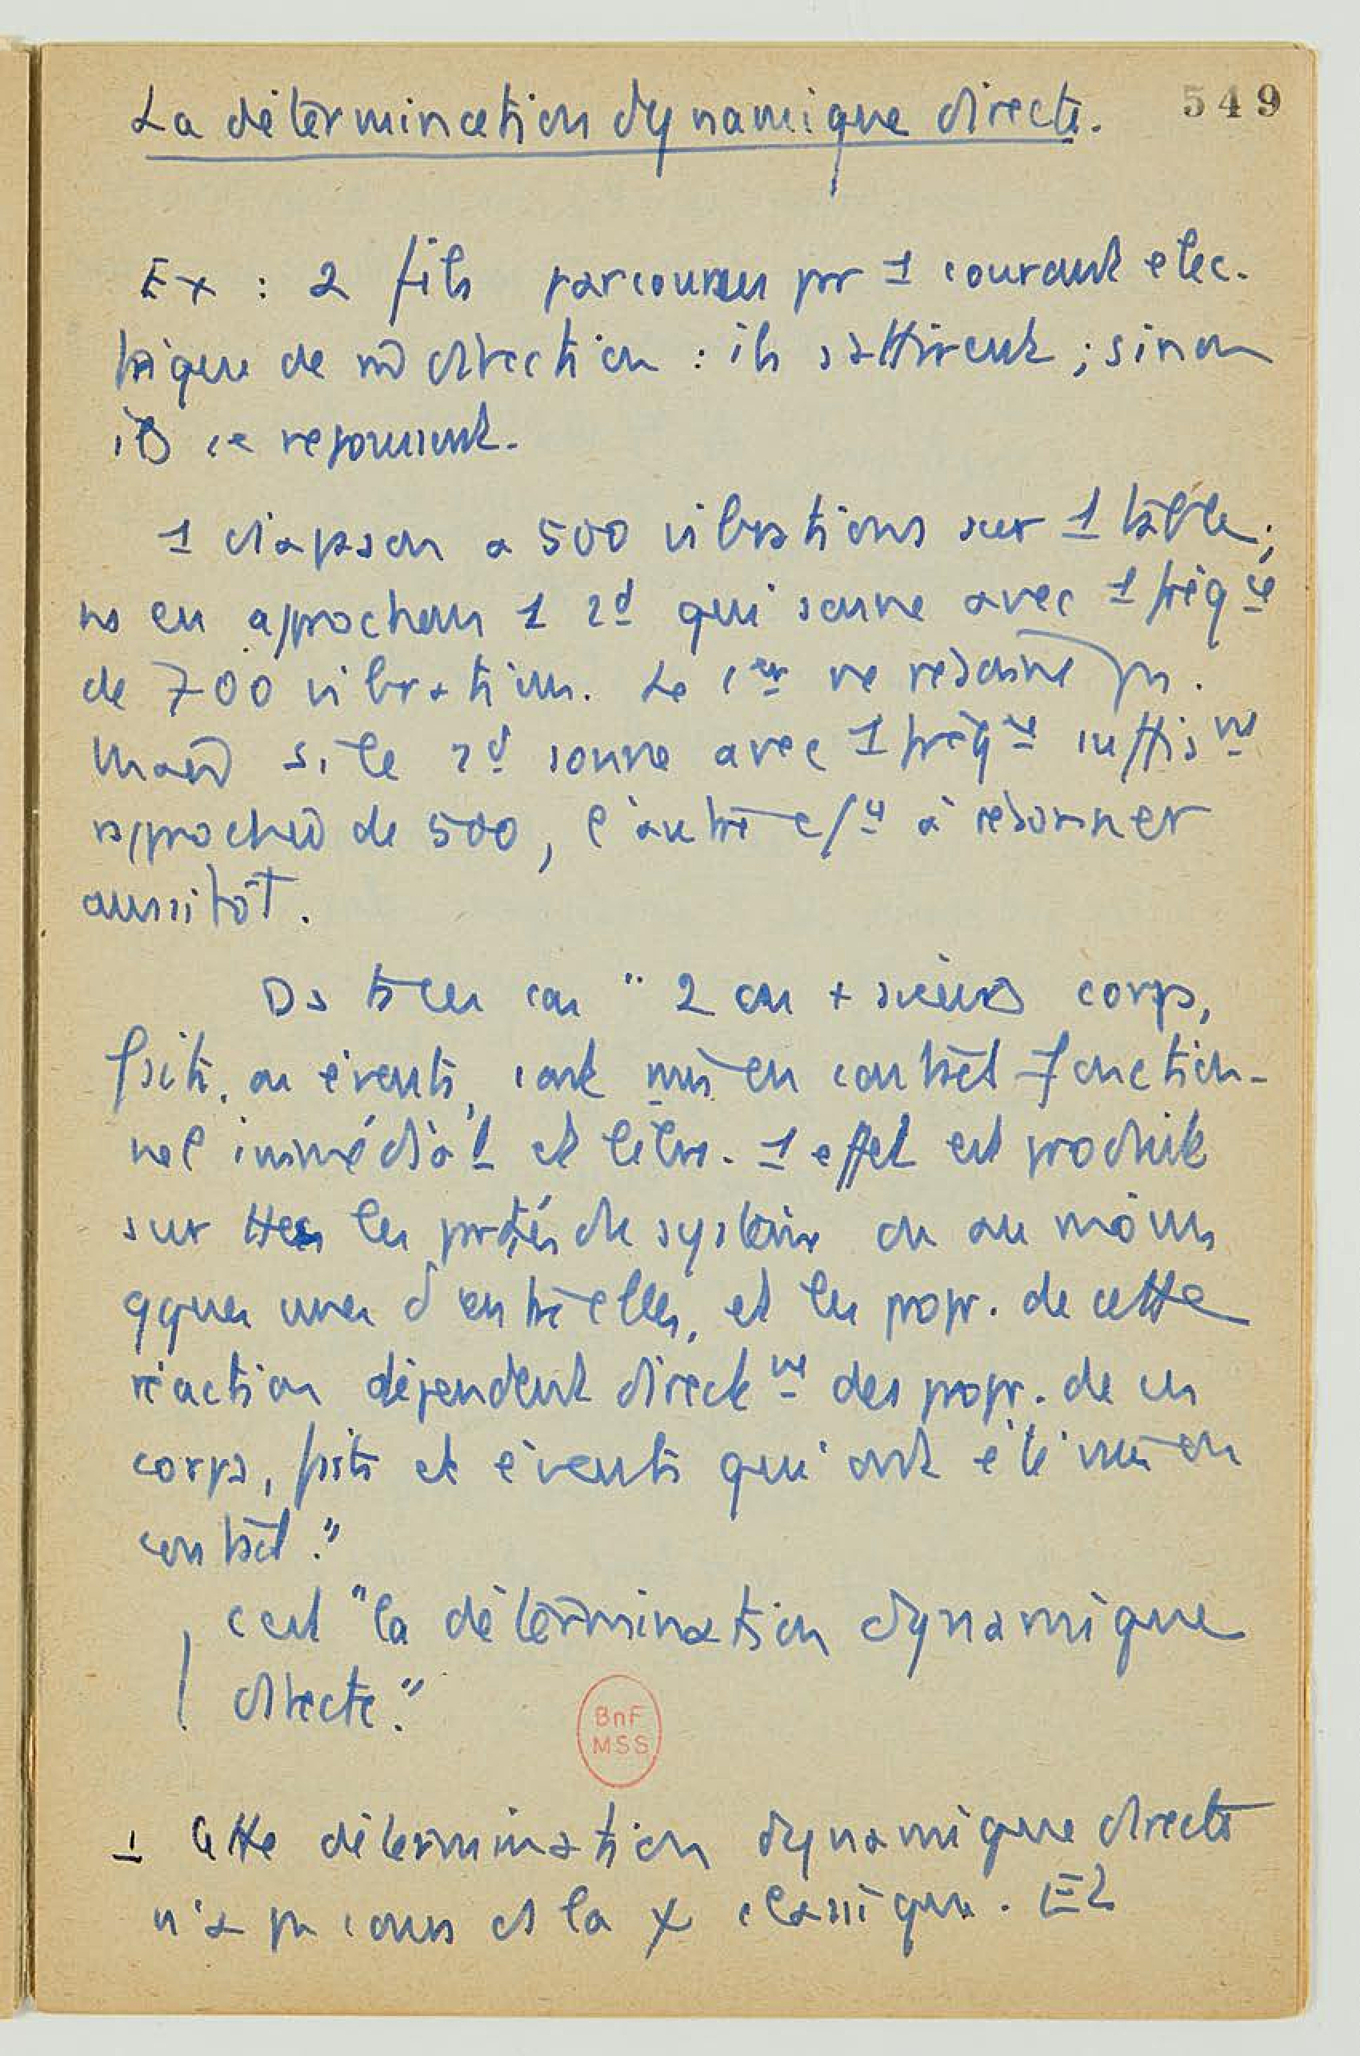 La détermination dynamique directe. 549
Ex : 2 fils parcourus pr 1 courant élec-
trique de m̂ direction : ils s'attirent ; sinon
ils se repoussent.
1 diapason a 500 vibrations sur 1 table ;
ns en approchons 1 2d qui sonne avec 1 fréqce
de 700 vibrations. Le 1er ne résonne pas.
Mais si le 2d sonne avec 1 fréqce suffismt
rapprochée de 500, l'autre à résonner
aussitôt.
Ds ts les cas " 2 ou +sieurs corps,
faits, ou évents, sont mis en contact fonction-
nel immédiat et libre. 1 effet est produit
sur ttes les parties du système ou au moins
qques unes d'entre elles, et les propr. de cette
réaction dépendent directmt des propr. de ces
corps, faits et évents qui ont été mis en
contact."
c'est "la détermination dynamique
directe."
BnF
MSS
1 Cette détermination dynamique directe
n'a pas cours ds la classique. Et